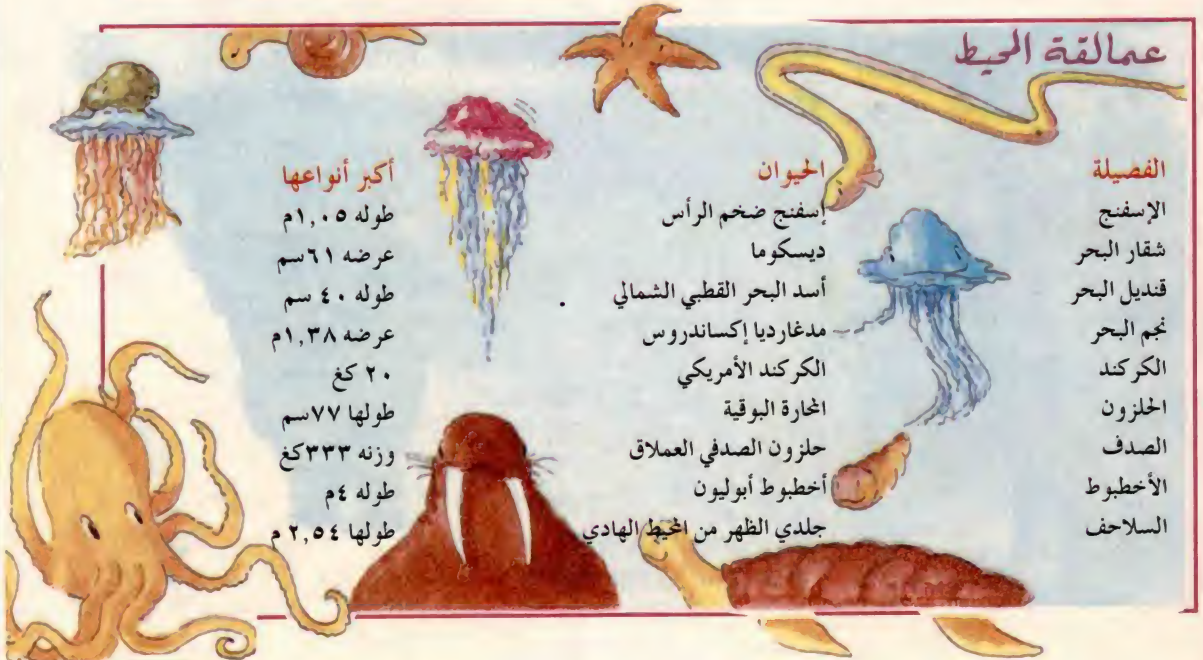 عمالقة المحيط
الفصيلة الحيوان أكبر أنواعها
الإسفنج إسفنج ضخم الرأس طوله ١,٠٥م
شقار البحر ديسكوما عرضه ٦١سم
قنديل البحر أسد البحر القطبي الشمالي طوله ٤٠ سم
نجم البحر مدغارديا إكساندروس عرضه ١,٣٨م
الكركند الكركند الأمريكي ٢٠ كغ
الحلزون المحارة البوقية طولها ٧٧سم
الصدف حلزون الصدفي العملاق وزنه ٣٣٣كغ
الأخطبوط أخطبوط أبوليون طوله ٤م
السلاحف جلدي الظهر من المحيط الهادي طولها ٢,٥٤ م